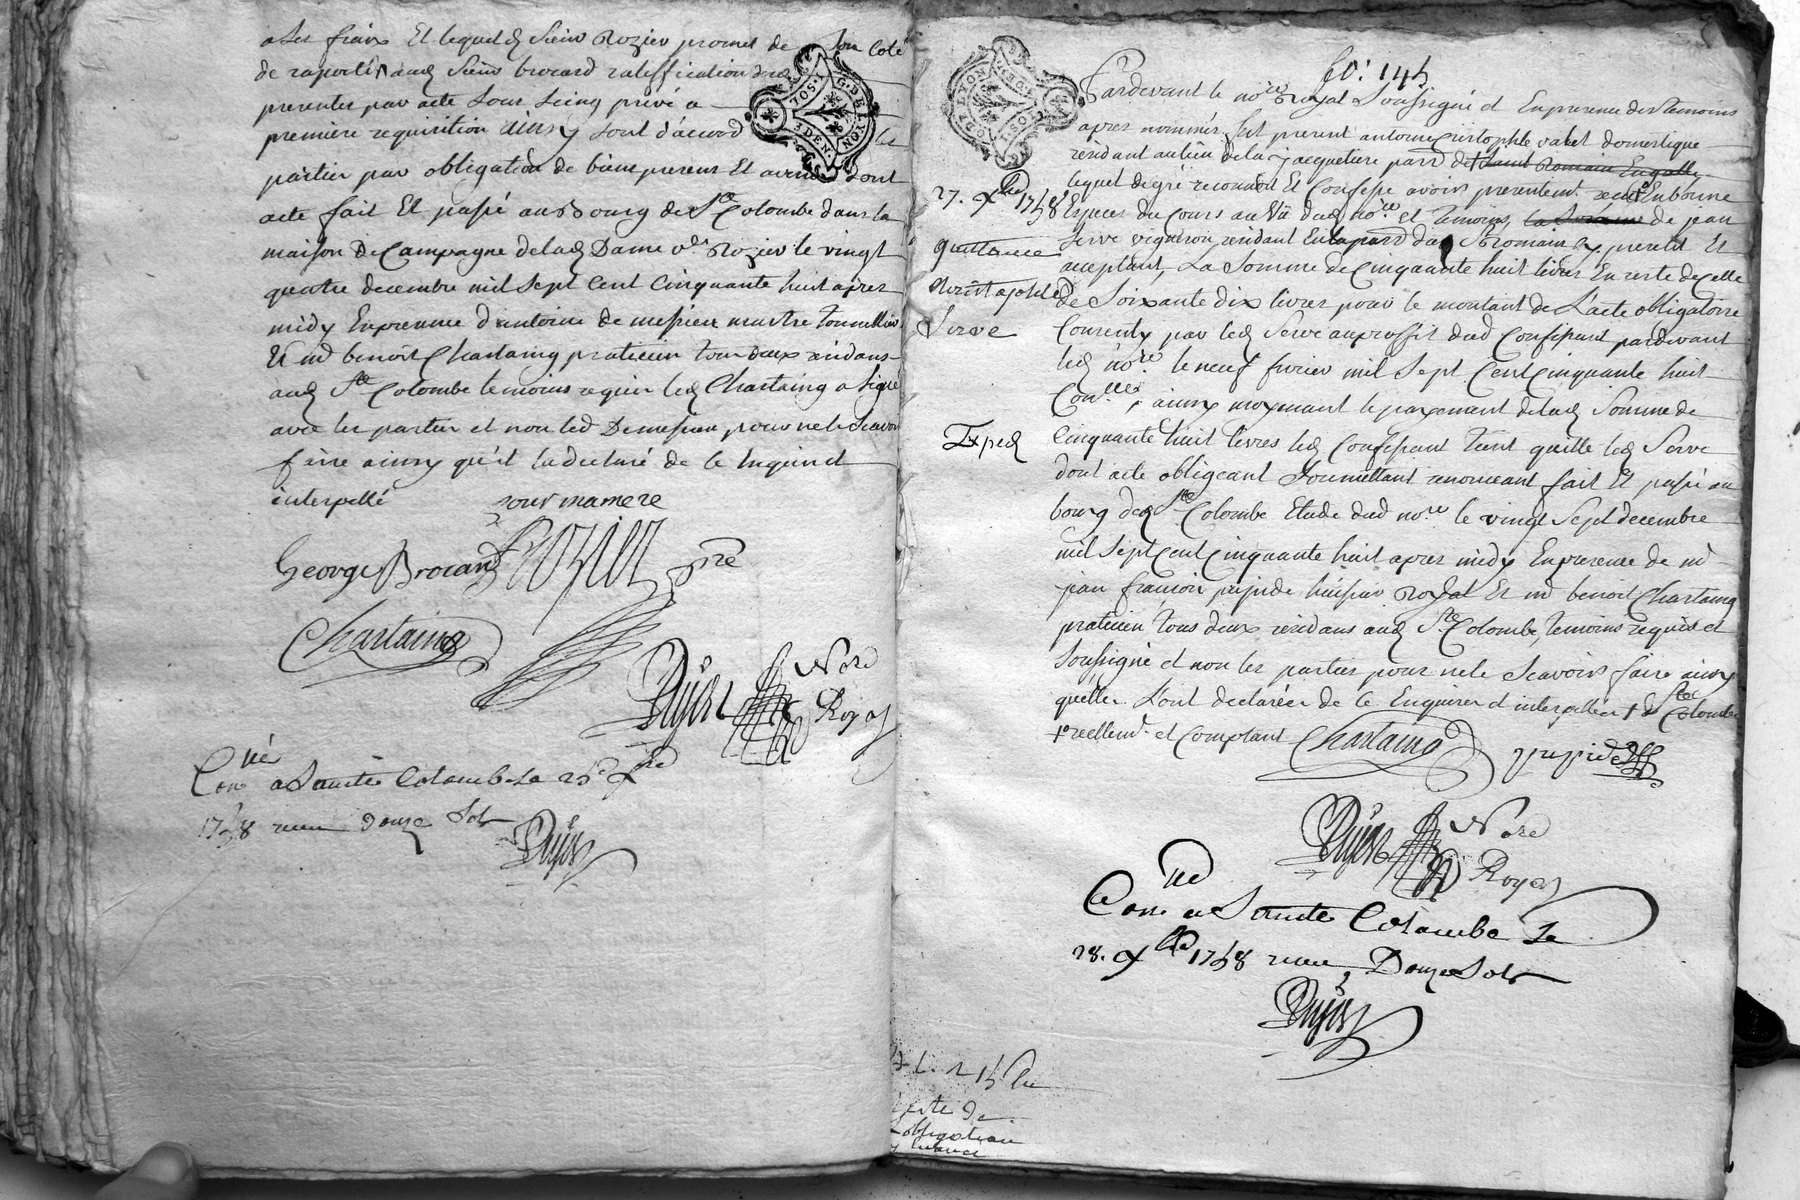 a ses fraix Et lequel d. Sieur Rozier promet de son coté
de raporter aud Sieur brocard ratiffication des
presentes par acte sous seing privé a
premiere requisition ainsy sont d'accord les
parties par obligation de biens presens Et avenir dont
acte fait Et passé au bourg de Ste Colombe dans la
maison de Campagne de lad Dame ve Rozier le vingt
quatre decembre mil sept Cent Cinquante huit apres
midy En presence d'antoine de messieu maitre tonnellier
Et md benoit Chartaing praticien tous deux residans
aud Ste Colombe temoins requis led Chartaing a signé
avec les parties et non led Demessieu pour ne le scavoir
faire ainsy qu'il la declaré de ce Enquis et
interpellé
pour ma mere
George Brocard Rozier pre
Chartaing
Dujast Nore
Royal
Conné a Sainte Colombe le 25e Xbre
1758 reçu douze sols
Dujast
fo. 145
Pardevant le nore Royal soussigné et En presence des temoins
apres nommés fut present antoine Cristophle valet domestique
residant au lieu de la jacquetiere parr de Saint Romain En gally
lequel de gré reconnoit Et Confesse avoir presentemt reçu En bonne
27. Xbre 1758
Especes du Cours au vû dud nore et temoins, la Somme de jean
Serve vigneron residant En la parr dud St Romain cy present Et
quittance
acceptant, La Somme de Cinquante huit livres En reste de celle
christophle
de Soixante dix livres pour le montant de L'acte obligatoire
Serve
Consenty par led Serve au proffit dud Confessant pardevant
led nore le neuf fevrier mil Sept Cent Cinquante huit
Conllé; ainsy moyenant le payement de lad Somme de
Exped
Cinquante huit livres led Confessant tient quitte led Serve
dont acte obligeant soumettant renonceant fait Et passé au
bourg dud Ste Colombe Etude dud nore le vingt Sept decembre
mil Sept Cent Cinquante huit apres midy En presence de md
jean françois pupide huissier Royal Et md benoit Chartaing
praticien tous deux residans aud Ste Colombe, temoins requis et
Soussigné et non les parties pour ne le Scavoir faire ainsy
quelles l'ont declarées de ce Enquises et interpellées † de Ste Colombe
† reellemt et Comptant Chartaing pupide
Dujast Nore
Royal
Conné a Sainte Colombe le
28. Xbre 1758 reçu Douze Sols
Dujast
acte de
obligation